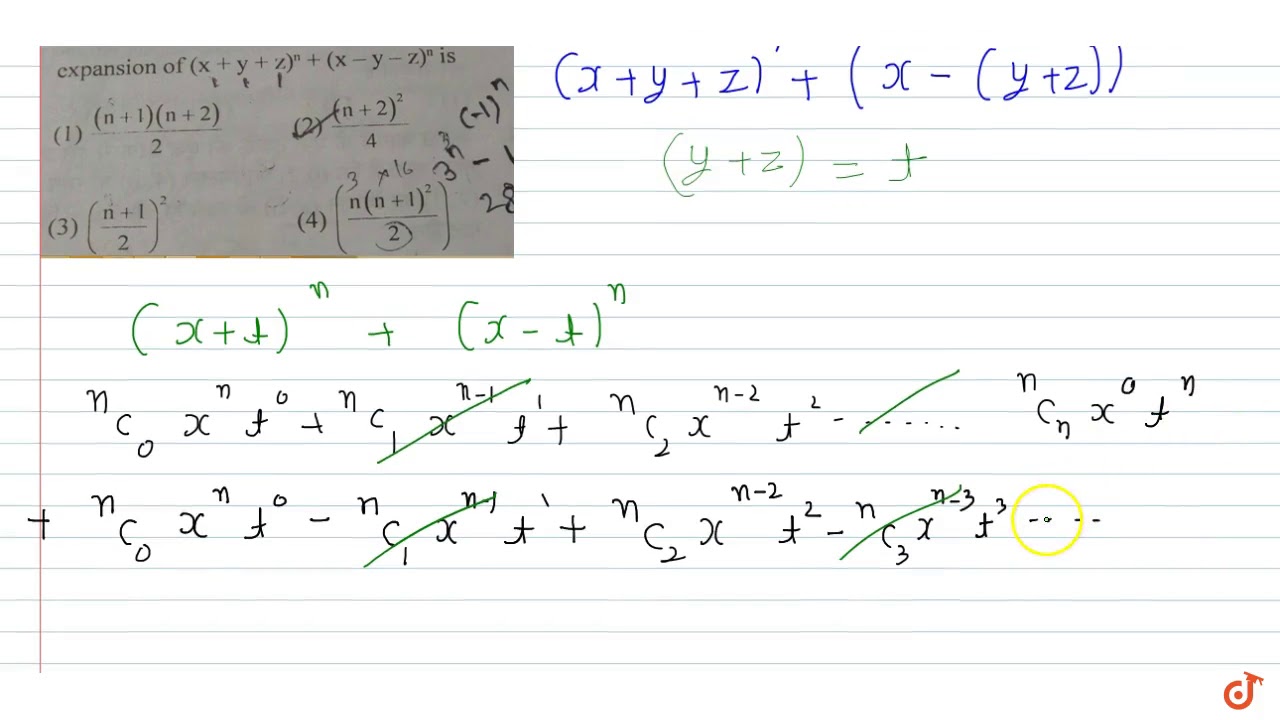 expansion of (x + y + z)ⁿ + (x – y – z)ⁿ is
(1) (n + 1)(n + 2) / 2
(2) (n + 2)² / 4
(3) ((n + 1) / 2)²
(4) (n(n + 1)² / 2)
(-1)ⁿ
3 × 16
3ⁿ - 1
28
(x + y + z) + (x - (y + z))
(y + z) = t
(x + t)ⁿ + (x - t)ⁿ
ⁿC₀ xⁿ t⁰ + ⁿC₁ xⁿ⁻¹ t¹ + ⁿC₂ xⁿ⁻² t² - ....... ⁿCₙ x⁰ tⁿ
+ ⁿC₀ xⁿ t⁰ - ⁿC₁ xⁿ⁻¹ t¹ + ⁿC₂ xⁿ⁻² t² - ⁿC₃ xⁿ⁻³ t³ .....